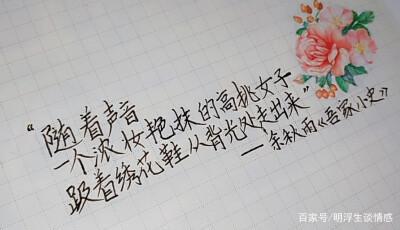 “随着声音
一个浓妆艳抹的高挑女子
趿着绣花鞋从背光处走出来”
——余秋雨《吾家小史》
百家号/明浮生谈情感